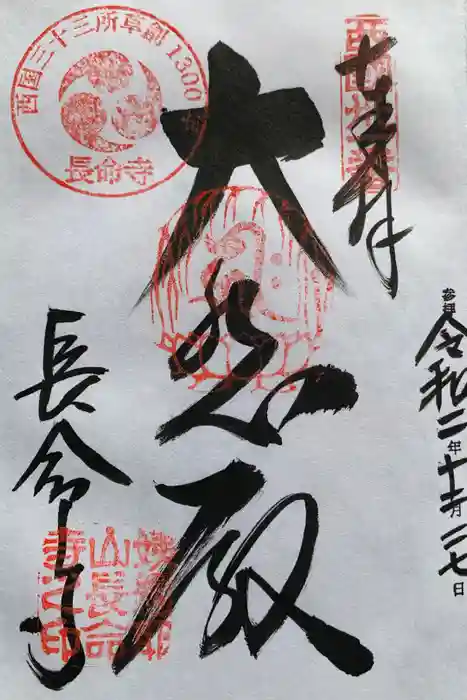 参拝
令和二年十二月二七日
奉拝
大悲殿
長命寺
西国三十三所草創1300年
長命寺
姨綺耶
山長命
寺之印